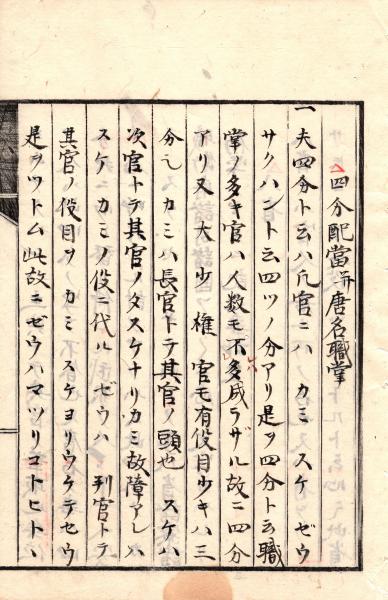 四分配當并唐名職掌
一 夫四分ト云ハ凡官ニハ カミ スケ ゼウ
サクハント云四ツノ分アリ是ヲ四分ト云職
掌ノ多キ官ハ人数モ不多成ラザル故ニ四分
アリ又大少權〻官モ有役目少キハ三
分也カミハ長官トテ其官ノ頭也 スケハ
次官トテ其官ノタスケナリカミ故障アレハ
スケ カミノ役ニ代ル ゼウハ 判官トテ
其官ノ役目ヲ カミ スケヨリウケテセウ
是ヲツトム此故ニゼウハマツリコトヒトヽ